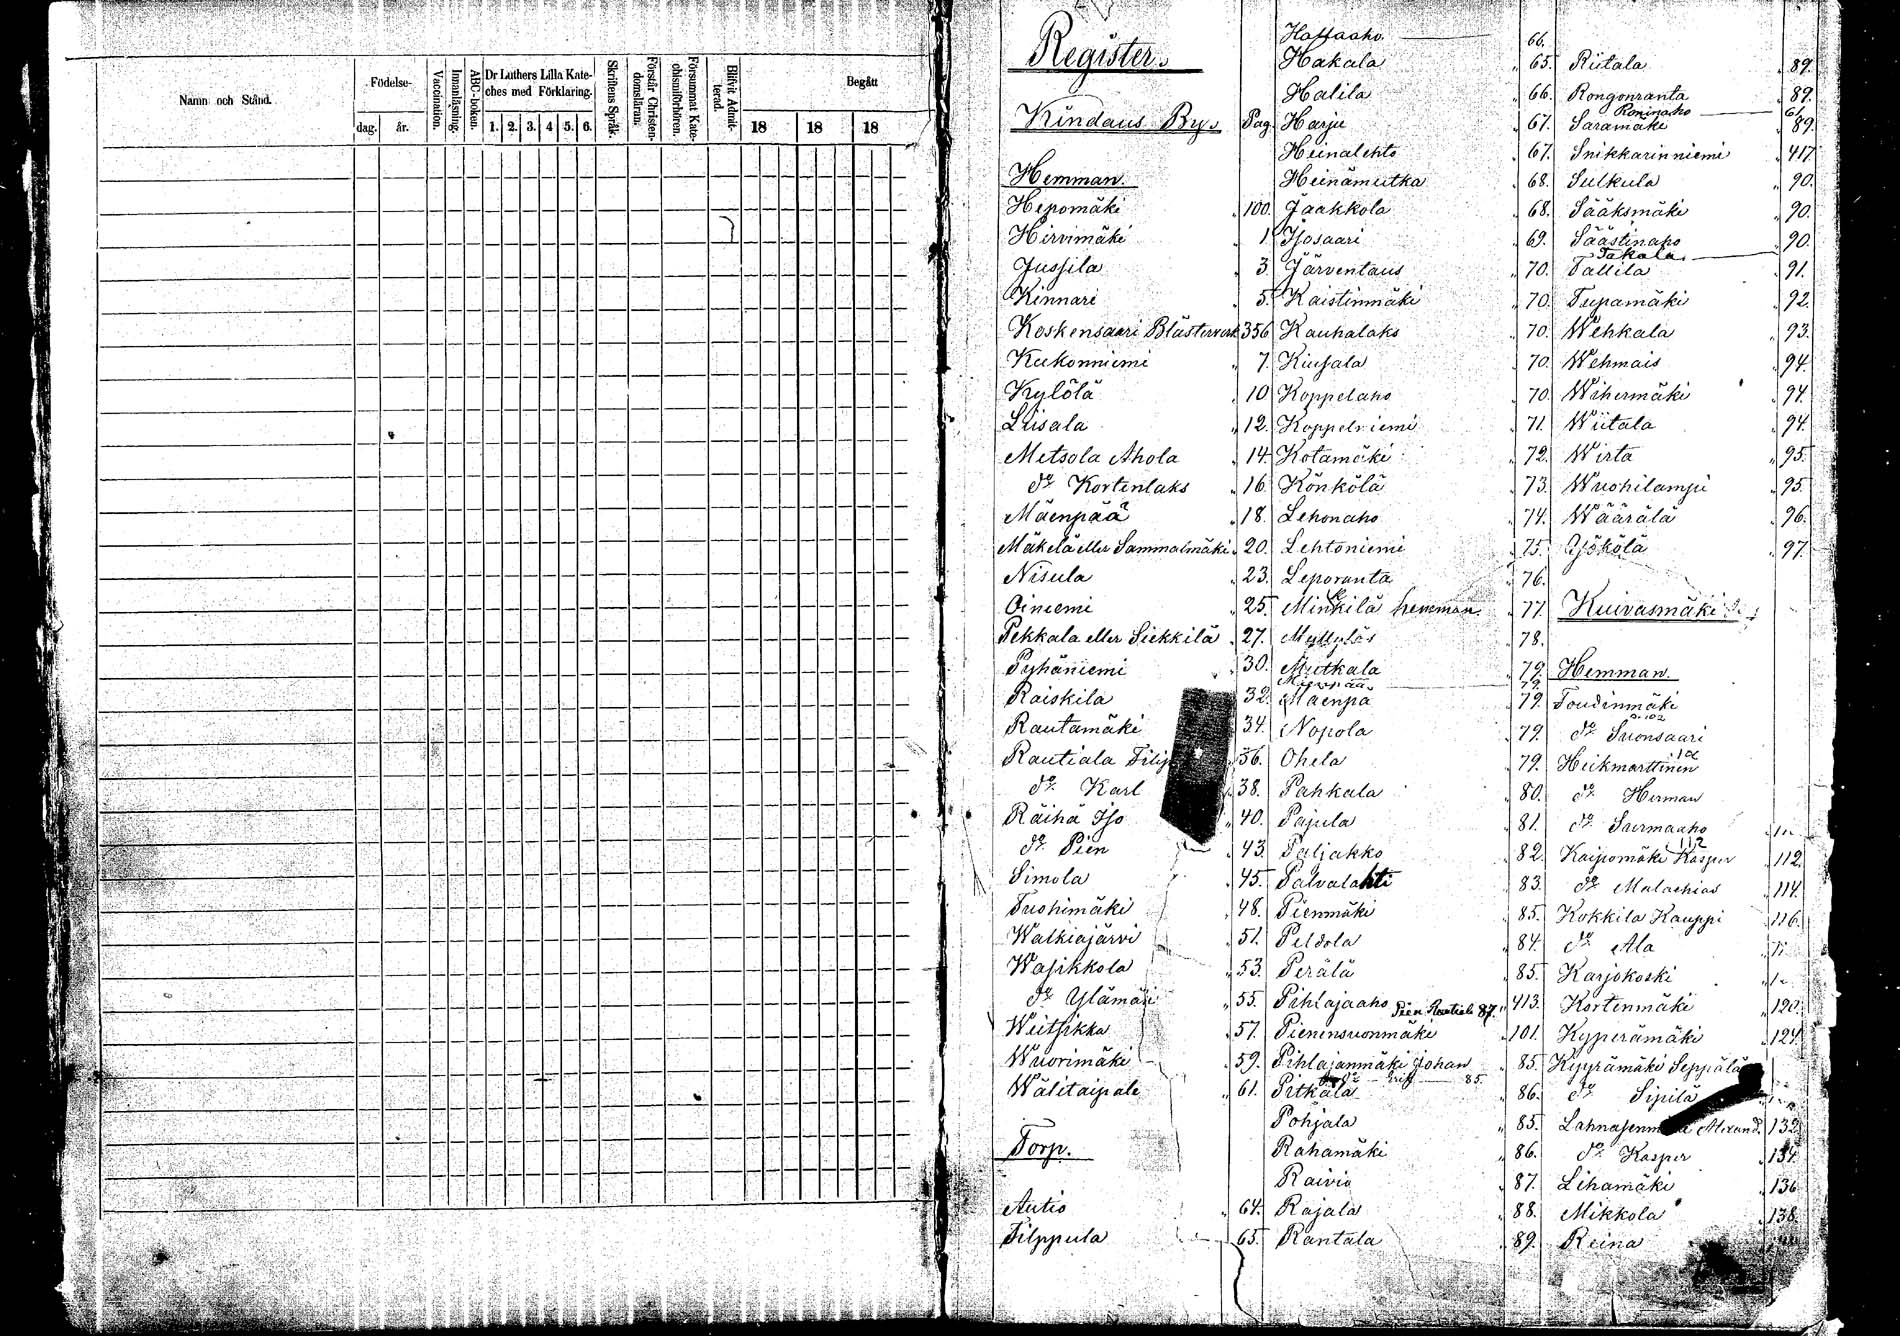 Namn och Stånd.
Födelse-
dag.
år.
Vaccination.
Innanläsning.
ABC-boken.
Dr Luthers Lilla Kate-
ches med Förklaring.
1. 2. 3. 4 5. 6.
Skriftens Språk.
Förstår Christen-
domsläran.
Försummat Kate-
chismiförhören.
Blifvit Admit-
terad.
Begått
18 18 18
Register.
Kindaus By. Pag.
Hemman.
Hepomäki " 100.
Hirvimäki " 1
Jussila " 3.
Kinnari " 5.
Koskensaari Blästerverk 356
Kukonniemi " 7.
Kylölä " 10
Liisala " 12.
Metsola Ahola " 14
do Kortenlaks " 16.
Mäenpää " 18.
Mäkelä eller Sammalmäki " 20.
Nisula " 23.
Oiniemi " 25.
Pekkala eller Siekkilä " 27.
Pyhäniemi " 30.
Raiskila 32.
Rautamäki 34.
Rautiala 36.
do Karl " 38.
Räihä Iso " 40.
do Pien " 43.
Simola " 45.
Tuohimäki " 48.
Walkiajärvi " 51.
Wasikkola " 53.
do Ylämäki " 55.
Weitsikka " 57.
Wuorimäki " 59.
Wälitaipale " 61.
Torp.
Autio " 64.
Filppula 65.
Hassaaho 66.
Hakala " 65.
Halila " 66.
Harju " 67.
Heinalehto " 67.
Heinämutka " 68.
Jaakkola " 68.
Isosaari " 69.
Järventaus " 70.
Kaistinmäki " 70.
Kauhalaks " 70.
Kiusala " 70.
Koppelaho " 70.
Koppelniemi " 71.
Kotamäki " 72.
Könkölä " 73.
Lehonaho " 74.
Lehtoniemi " 75.
Leporanta " 76.
Minkilä hemman " 77.
Myllylä 78.
Mutkala 79.
79.
Mäenpä " 79.
Nopola " 79.
Ohela " 79.
Pahkala " 80.
Pajula " 81.
Paljakko " 82.
Palvalahti " 83.
Pienmäki " 85.
Peldola " 84.
Perälä " 85.
Pihlajaaho " 413.
Pien Rautiala 87.
Pienensuonmäki 101.
Pihlajanmäki Johan " 85.
85.
Pitkälä " 86.
Pohjala " 85.
Rahamäki " 86.
Raivio " 87.
Rajala " 88.
Rantala " 89.
Riitala " 89.
Rongonranta " 89.
Roninaho
Saramäki " 89.
Snikkarinniemi " 417.
Sulkula " 90.
Sääksmäki " 90.
Säästinaho " 90.
Takala
Tallila " 91.
Tupamäki " 92.
Wehkala " 93.
Wehmais " 94.
Wihermäki " 94.
Wiitala " 94.
Wirta " 95.
Wuohilampi " 95.
Wäärälä " 96.
" 97.
Kuivasmäki
Hemman.
Toudinmäki
102
do Suonsaari
Heikmarttinen
do Herman
do Surmaaho
112
Kaipomäki Kasper " 112.
do Malachias " 114.
Kokkila Kauppi " 116.
do Ala
Karjokoski
Kortenmäki " 120.
Kyperämäki " 124.
Kyyrämäki Seppälä
do Sipilä
132
do Kasper " 134.
Lihamäki " 136
Mikkola " 138.
Reina